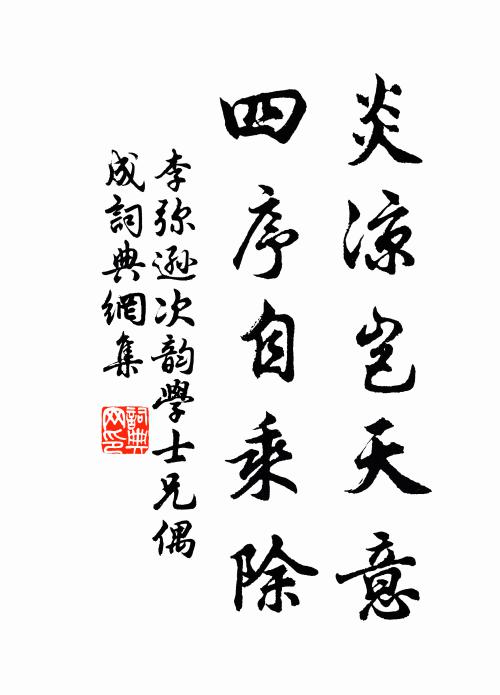 炎涼豈天意
四序自乘除
李弥遜次韵學士兄偶
成詞典網集
詞典
网印